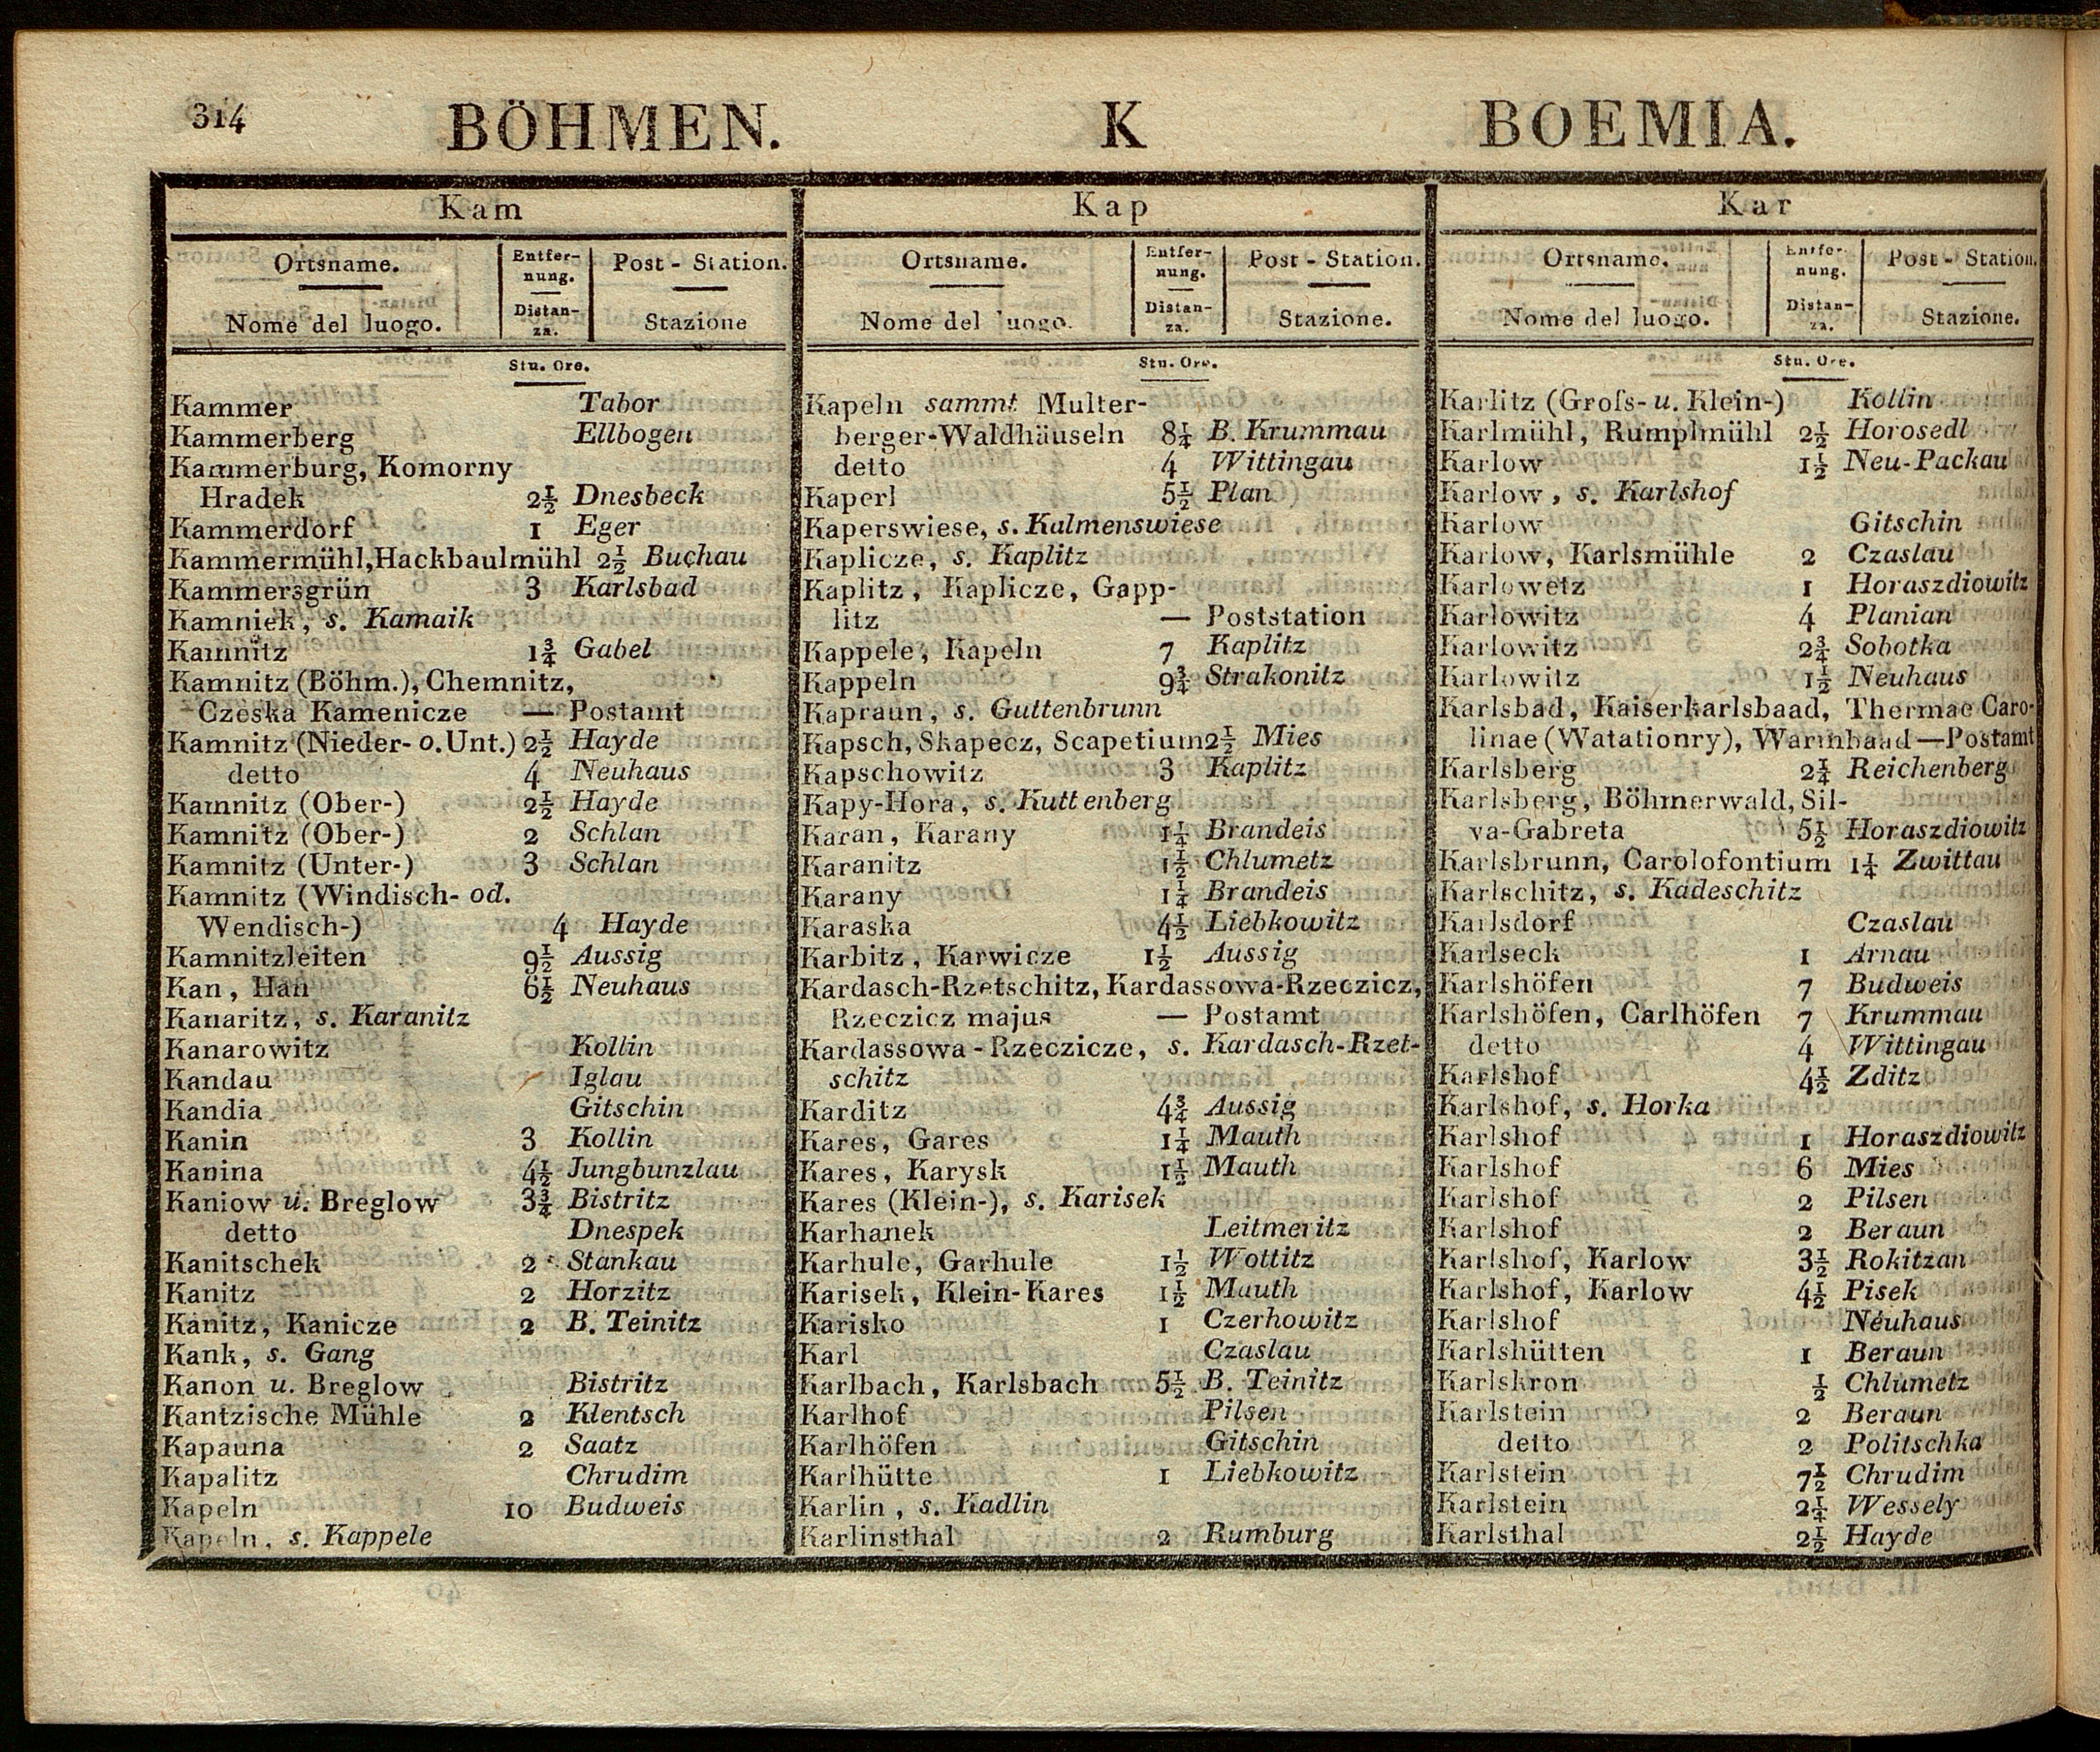 314 BÖHMEN. K BOEMIA.
Kam
Ortsname. Entfer- Post - Station.
nung.
Nome del luogo. Distan- Stazione
za.
Stu. Ore.
Kammer Tabor
Kammerberg Ellbogen
Kammerburg, Komorny
Hradek 2½ Dnesbeck
Kammerdorf 1 Eger
Kammermühl, Hackbaulmühl 2½ Buchau
Kammersgrün 3 Karlsbad
Kamniek, s. Kamaik
Kamnitz 1¾ Gabel
Kamnitz (Böhm.), Chemnitz,
Czeska Kamenicze — Postamt
Kamnitz (Nieder- o. Unt.) 2½ Hayde
detto 4 Neuhaus
Kamnitz (Ober-) 2½ Hayde
Kamnitz (Ober-) 2 Schlan
Kamnitz (Unter-) 3 Schlan
Kamnitz (Windisch- od.
Wendisch-) 4 Hayde
Kamnitzleiten 9½ Aussig
Kan, Han 6½ Neuhaus
Kanaritz, s. Karanitz
Kanarowitz Kollin
Kandau Iglau
Kandia Gitschin
Kanin 3 Kollin
Kanina 4½ Jungbunzlau
Kaniow u. Breglow 3¾ Bistritz
detto Dnespek
Kanitschek 2 Stankau
Kanitz 2 Horzitz
Kanitz, Kanicze 2 B. Teinitz
Kank, s. Gang
Kanon u. Breglow Bistritz
Kantzische Mühle 2 Klentsch
Kapauna 2 Saatz
Kapalitz Chrudim
Kapeln 10 Budweis
Kapeln, s. Kappele
Kap
Ortsname. Entfer- Post - Station.
nung.
Nome del luogo. Distan- Stazione.
za.
Stu. Ore.
Kapeln sammt Multer-
berger-Waldhäuseln 8¼ B. Krummau
detto 4 Wittingau
Kaperl 5½ Plan
Kaperswiese, s. Kalmenswiese
Kaplicze, s. Kaplitz
Kaplitz, Kaplicze, Gapp-
litz — Poststation
Kappele, Kapeln 7 Kaplitz
Kappeln 9¾ Strakonitz
Kapraun, s. Guttenbrunn
Kapsch, Skapecz, Scapetium 2½ Mies
Kapschowitz 3 Kaplitz
Kapy-Hora, s. Kuttenberg
Karan, Karany 1¼ Brandeis
Karanitz 1½ Chlumetz
Karany 1¼ Brandeis
Karaska 4½ Liebkowitz
Karbitz, Karwicze 1½ Aussig
Kardasch-Rzetschitz, Kardassowa-Rzeczicz,
Rzeczicz majus — Postamt
Kardassowa-Rzeczicze, s. Kardasch-Rzet-
schitz
Karditz 4¾ Aussig
Kares, Gares 1¼ Mauth
Kares, Karysk 1½ Mauth
Kares (Klein-), s. Karisek
Karhanek Leitmeritz
Karhule, Garhule 1½ Wottitz
Karisek, Klein-Kares 1½ Mauth
Karisko 1 Czerhowitz
Karl Czaslau
Karlbach, Karlsbach 5½ B. Teinitz
Karlhof Pilsen
Karlhöfen Gitschin
Karlhütte 1 Liebkowitz
Karlin, s. Kadlin
Karlinsthal 2 Rumburg
Kar
Ortsname. Entfer- Post - Station.
nung.
Nome del luogo. Distan- Stazione.
za.
Stu. Ore.
Karlitz (Groſs- u. Klein-) Kollin
Karlmühl, Rumplmühl 2½ Horosedl
Karlow 1½ Neu-Packau
Karlow, s. Karlshof
Karlow Gitschin
Karlow, Karlsmühle 2 Czaslau
Karlowetz 1 Horaszdiowitz
Karlowitz 4 Planian
Karlowitz 2¾ Sobotka
Karlowitz 1½ Neuhaus
Karlsbad, Kaiserkarlsbaad, Thermae Caro-
linae (Watationry), Warmbaad — Postamt
Karlsberg 2¼ Reichenberg
Karlsberg, Böhmerwald, Sil-
va-Gabreta 5½ Horaszdiowitz
Karlsbrunn, Carolofontium 1¼ Zwittau
Karlschitz, s. Kadeschitz
Karlsdorf Czaslau
Karlseck 1 Arnau
Karlshöfen 7 Budweis
Karlshöfen, Carlhöfen 7 Krummau
detto 4 Wittingau
Karlshof 4½ Zditz
Karlshof, s. Horka
Karlshof 1 Horaszdiowitz
Karlshof 6 Mies
Karlshof 2 Pilsen
Karlshof 2 Beraun
Karlshof, Karlow 3½ Rokitzan
Karlshof, Karlow 4½ Pisek
Karlshof Neuhaus
Karlshütten 1 Beraun
Karlskron ½ Chlumetz
Karlstein 2 Beraun
detto 2 Politschka
Karlstein 7½ Chrudim
Karlstein 2¼ Wessely
Karlsthal 2½ Hayde